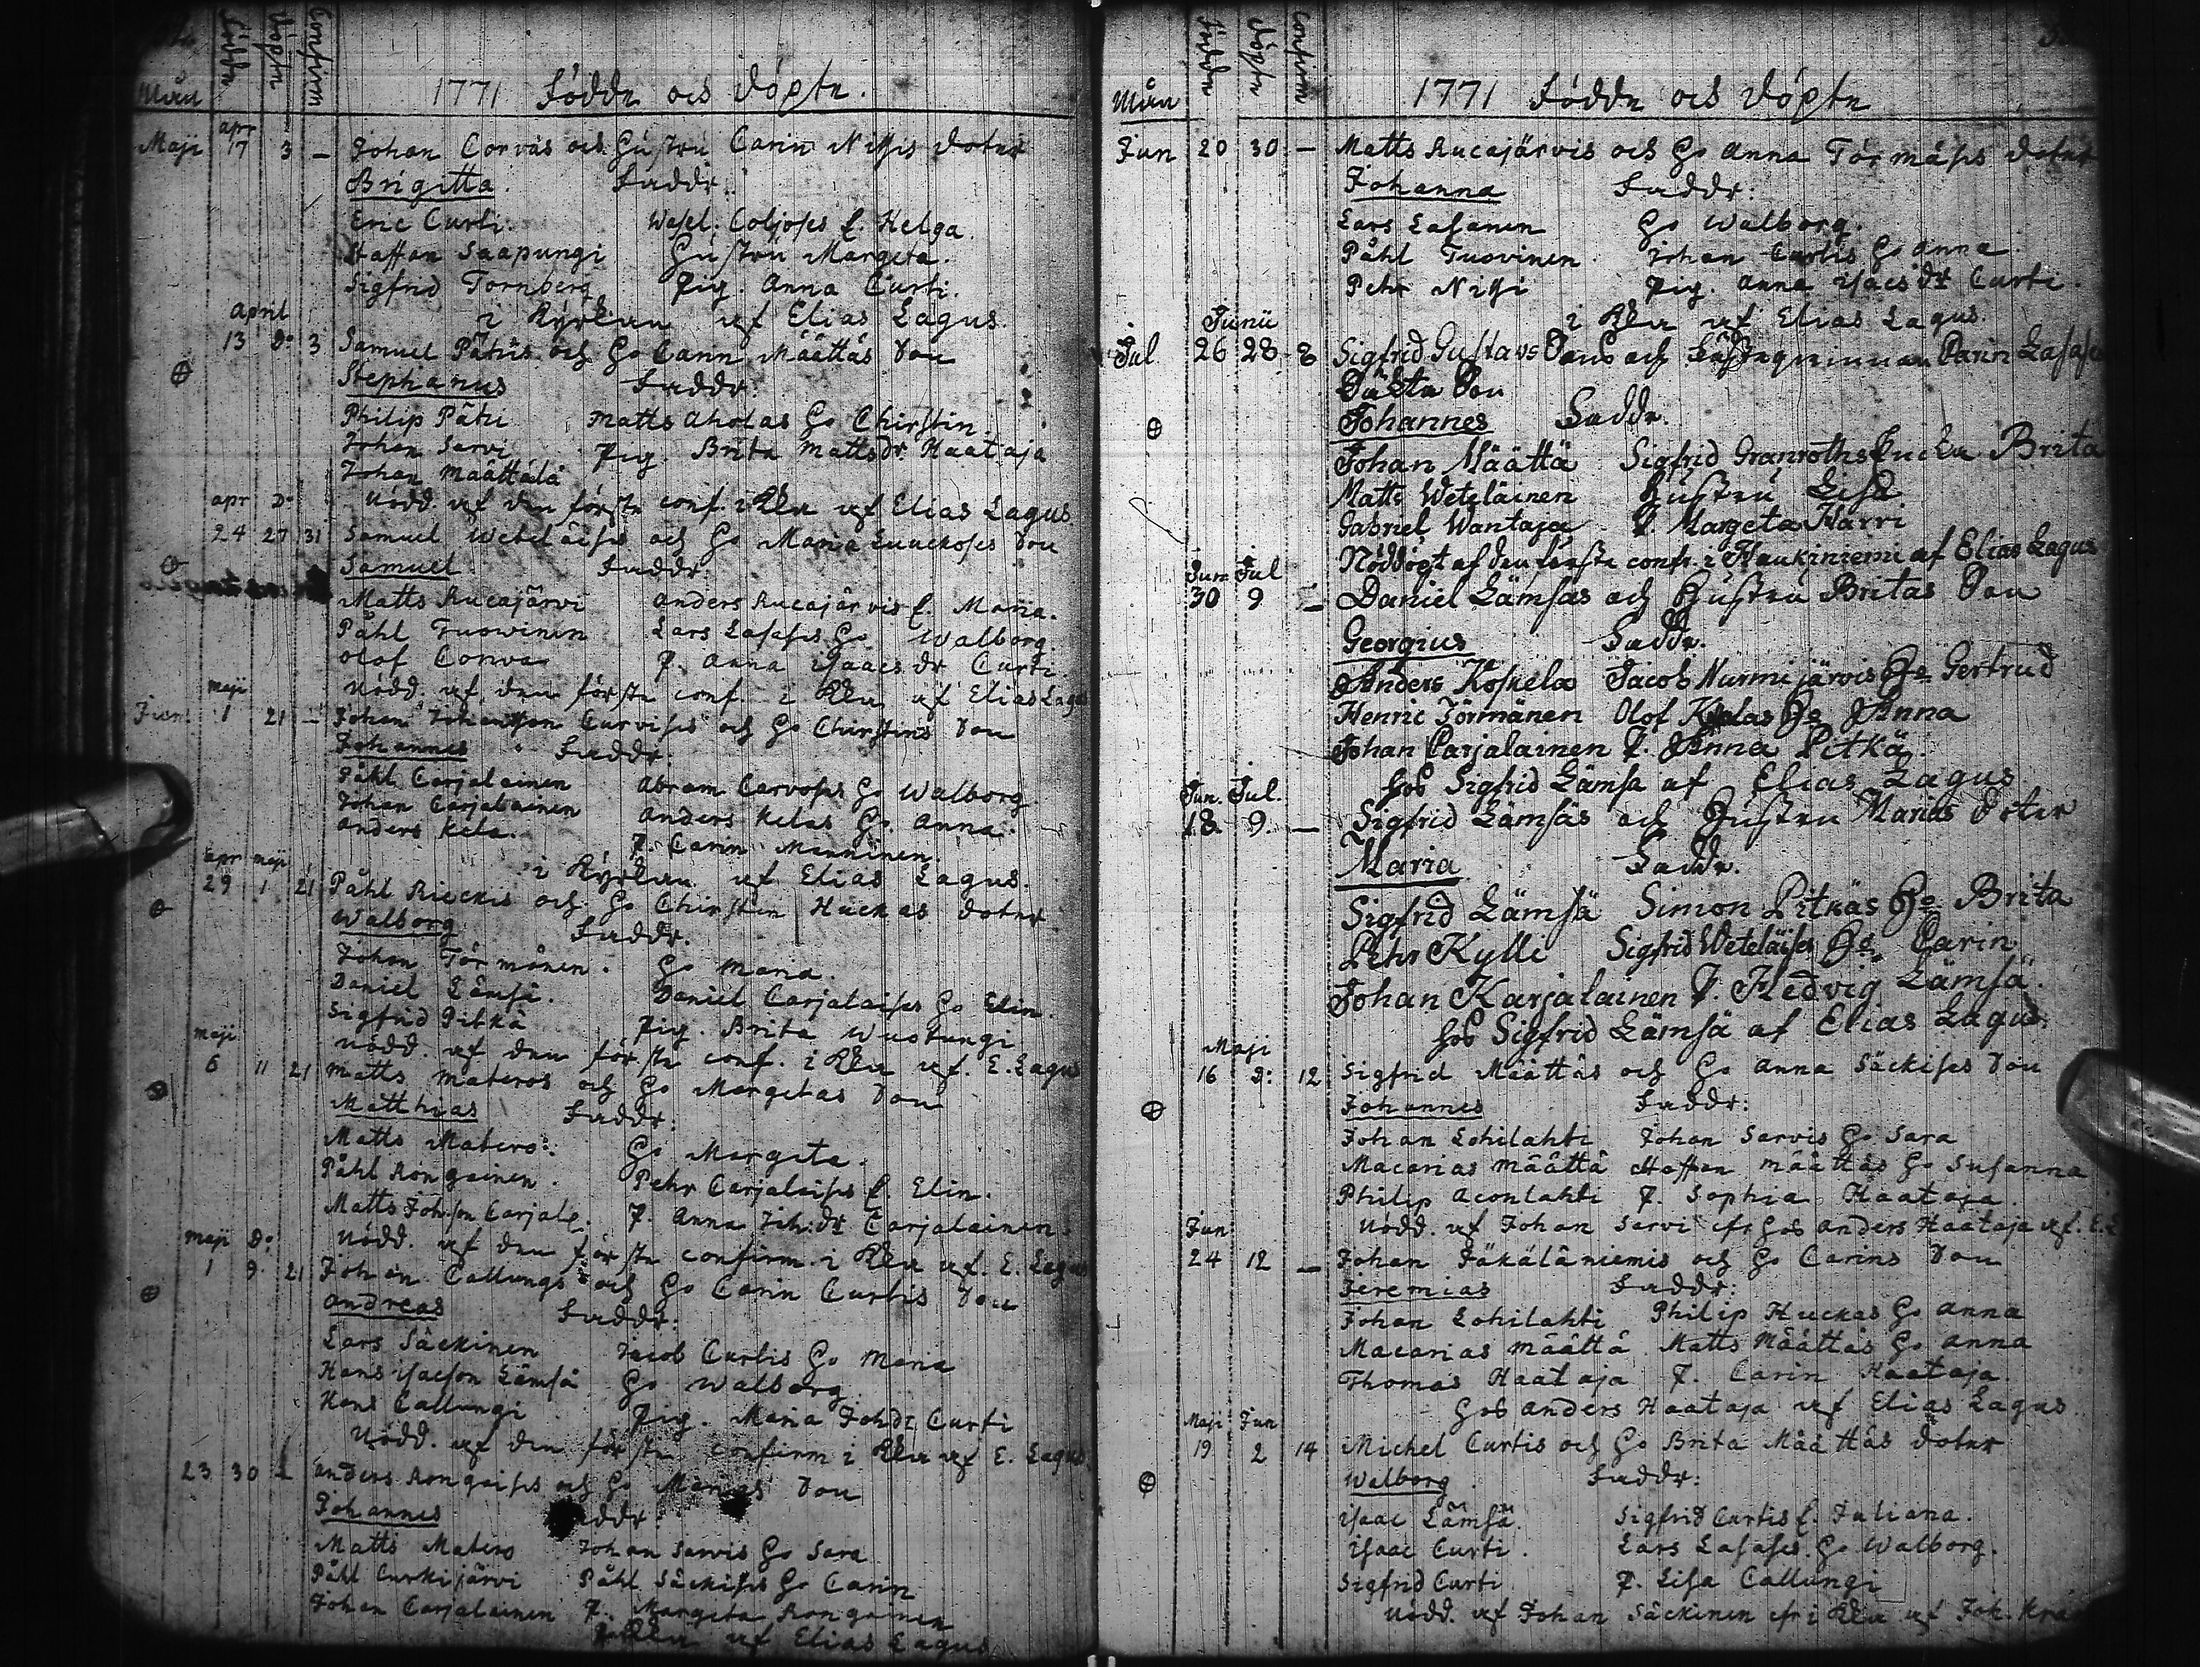 Födde Döpte Confirm
Mån 1771 Födde och Döpte.
apr
Maji 17 3 — Johan Corvas och Hustru Carin Nissis doter
Brigitta. Faddr.
Eric Curti. Wesel. Coljoses E. Helga.
Staffan Saapungi Hustru Margeta.
Sigfrid Tornberg Pig. Anna Curti.
i Kyrkan af Elias Lagus.
April
13 D:o 3 Samuel Pätris och Ho Carin Määttäs Son
Stephanus Faddr.
Philip Pätri Matts Aholas Ho Chirstin.
Johan Sarvi Pig. Brita Mattsdr Haataja
Johan Määttälä
Nödd. af den förste conf. i Kkn af Elias Lagus
apr D:o
24 27 31 Samuel Weteläises och Ho Maria Luuckoses Son
Samuel. Faddr.
Matts Rucajärvi Anders Rucajärvis E. Maria.
Påhl Tuovinen Lars Lasases Ho Walborg.
Olof Corva P. Anna Isaacs dr Curti
Nödd. af den förste conf. i Kkn af Elias Lagus
maji
Jun. 1 21 — Johan Johansson Curvises och Ho Chirstins Son
Johannes Faddr.
Påhl Carjalainen Abram Carvoses Ho Walborg
Johan Carjalainen Anders Kelas Ho. Anna.
Anders Kela. P. Carin Manninen.
i Kyrkan af Elias Lagus.
apr maji
29 1 21 Påhl Rieckis och Ho Chirstin Huckas doter
Walborg Faddr.
Johan Törmänen. Ho Maria.
Daniel Lämsä. Daniel Carjalaises Ho Elin.
Sigfrid Pitkä Pig. Brita Wustungi
Nödd. af den förste conf. i Kkn af. E. Lagus
maji
6 11 21 Matts Materos och Ho Margetas Son
Matthias Faddr.
Matts Matero. Ho Margeta.
Påhl Rongainen. Pehr Carjalaises E. Elin.
Matts Johsson Carjale. P. Anna Joh:dr Carjalainen.
Nödd. af den förste confirm. i Kkn af. E. Lagus
maji D:o
1 9 21 Johan Callungs och Ho Carin Curtis Son
Andreas Faddr.
Lars Säckinen Jacob Curtis Ho Maria
Hans Isacson Lämsä Ho Walborg
Hans Callungi Pig. Maria Johdr Curti
Nödd. af den förste confirm i Kkn af E. Lagus
23 30 Anders Rongaises och Ho Marias Son
Johannes Faddr.
Matts Matero Johan Sarvis Ho Sara
Påhl Curkijärvi Påhl Säckises Ho Carin
Johan Carjalainen P. Margeta Rongainen
i Kkn af Elias Lagus
Födde Döpte Confirm
Mån 1771 Födde och Döpte
Jun 20 30 — Matts Rucajärvis och Ho Anna Törmäses doter
Johanna Faddr:
Lars Lasanen Ho Walborg.
Påhl Tuovinen Johan Curtis Ho Anna
Pehr Nissi Pig. Anna Isacs dr Curti.
i Kkn af Elias Lagus.
Junii
Jul 26 28 8 Sigfrid Gustavs Sons och Carin Lasases
Son
Johannes Faddr.
Johan Määttä Sigfrid Granroths Enka Brita
Matts Weteläinen Hustru Lisa
Gabriel Wantaja P. Margeta Harri
Nöddöpt af den förste conf. i Haukiniemi af Elias Lagus
Jun Jul
30 9 — Daniel Lämsas och Hustru Britas Son
Georgius Faddr.
Anders Koskela Jacob Nurmijärvis Ho Gertrud
Henric Törmänen Olof Kelas Ho Anna
Johan Carjalainen P. Anna Pitkä.
hos Sigfrid Lämsa af Elias Lagus
Jun. Jul.
18 9. — Sigfrid Lämsäs och Hustru Marias Doter
Maria Faddr.
Sigfrid Lämsä Simon Pitkäs Ho Brita
Pehr Kylli Sigfrid Weteläises Ho Carin
Johan Karjalainen P. Hedvig Lämsä.
hos Sigfrid Lämsä af Elias Lagus
Maji
16 D: 12 Sigfrid Määttäs och Ho Anna Säckises Son
Johannes Faddr:
Johan Lohilahti Johan Sarvis Ho Sara
Macarias Määttä Staffan Määttäs Ho Susanna
Philip Aconlahti P. Sophia Haataja
Nödd. af Johan Sarvi cfr hos Anders Haataja af. E. L
Jun
24 12 — Johan Jäkäläniemis och Ho Carins Son
Jeremias Faddr:
Johan Lohilahti Philip Huckas Ho Anna
Macarias Määttä Matts Määttäs Ho Anna
Thomas Haataja P. Carin Haataja.
hos Anders Haataja af Elias Lagus
Maji Jun
19 2 14 Michel Curtis och Ho Brita Määttäs Doter
Walborg Faddr:
Isaac Lämsä. Sigfrid Curtis E. Juliana.
Isaac Curti. Lars Lasases Ho Walborg.
Sigfrid Curti P. Lisa Callungi
Nödd. af Johan Säckinen cfr i Kkn af Joh.